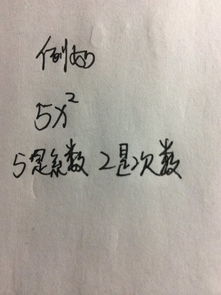 例如
5x²
5是系数 2是次数